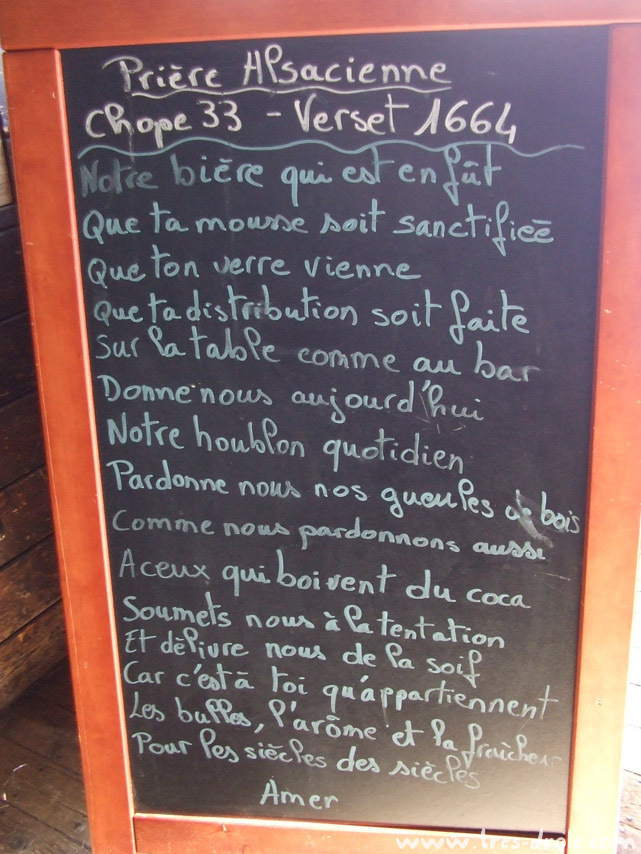 Prière Alsacienne
Chope 33 - Verset 1664
Notre bière qui est en fût
Que ta mousse soit sanctifieé
Que ton verre vienne
Que ta distribution soit faite
Sur la table comme au bar
Donne nous aujourd'hui
Notre houblon quotidien
Pardonne nous nos gueules de bois
Comme nous pardonnons aussi
A ceux qui boivent du coca
Soumets nous à la tentation
Et délivre nous de la soif
Car c'est à toi qu'appartiennent
Les bulles, l'arôme et la fraîcheur
Pour les siècles des siècles
Amer